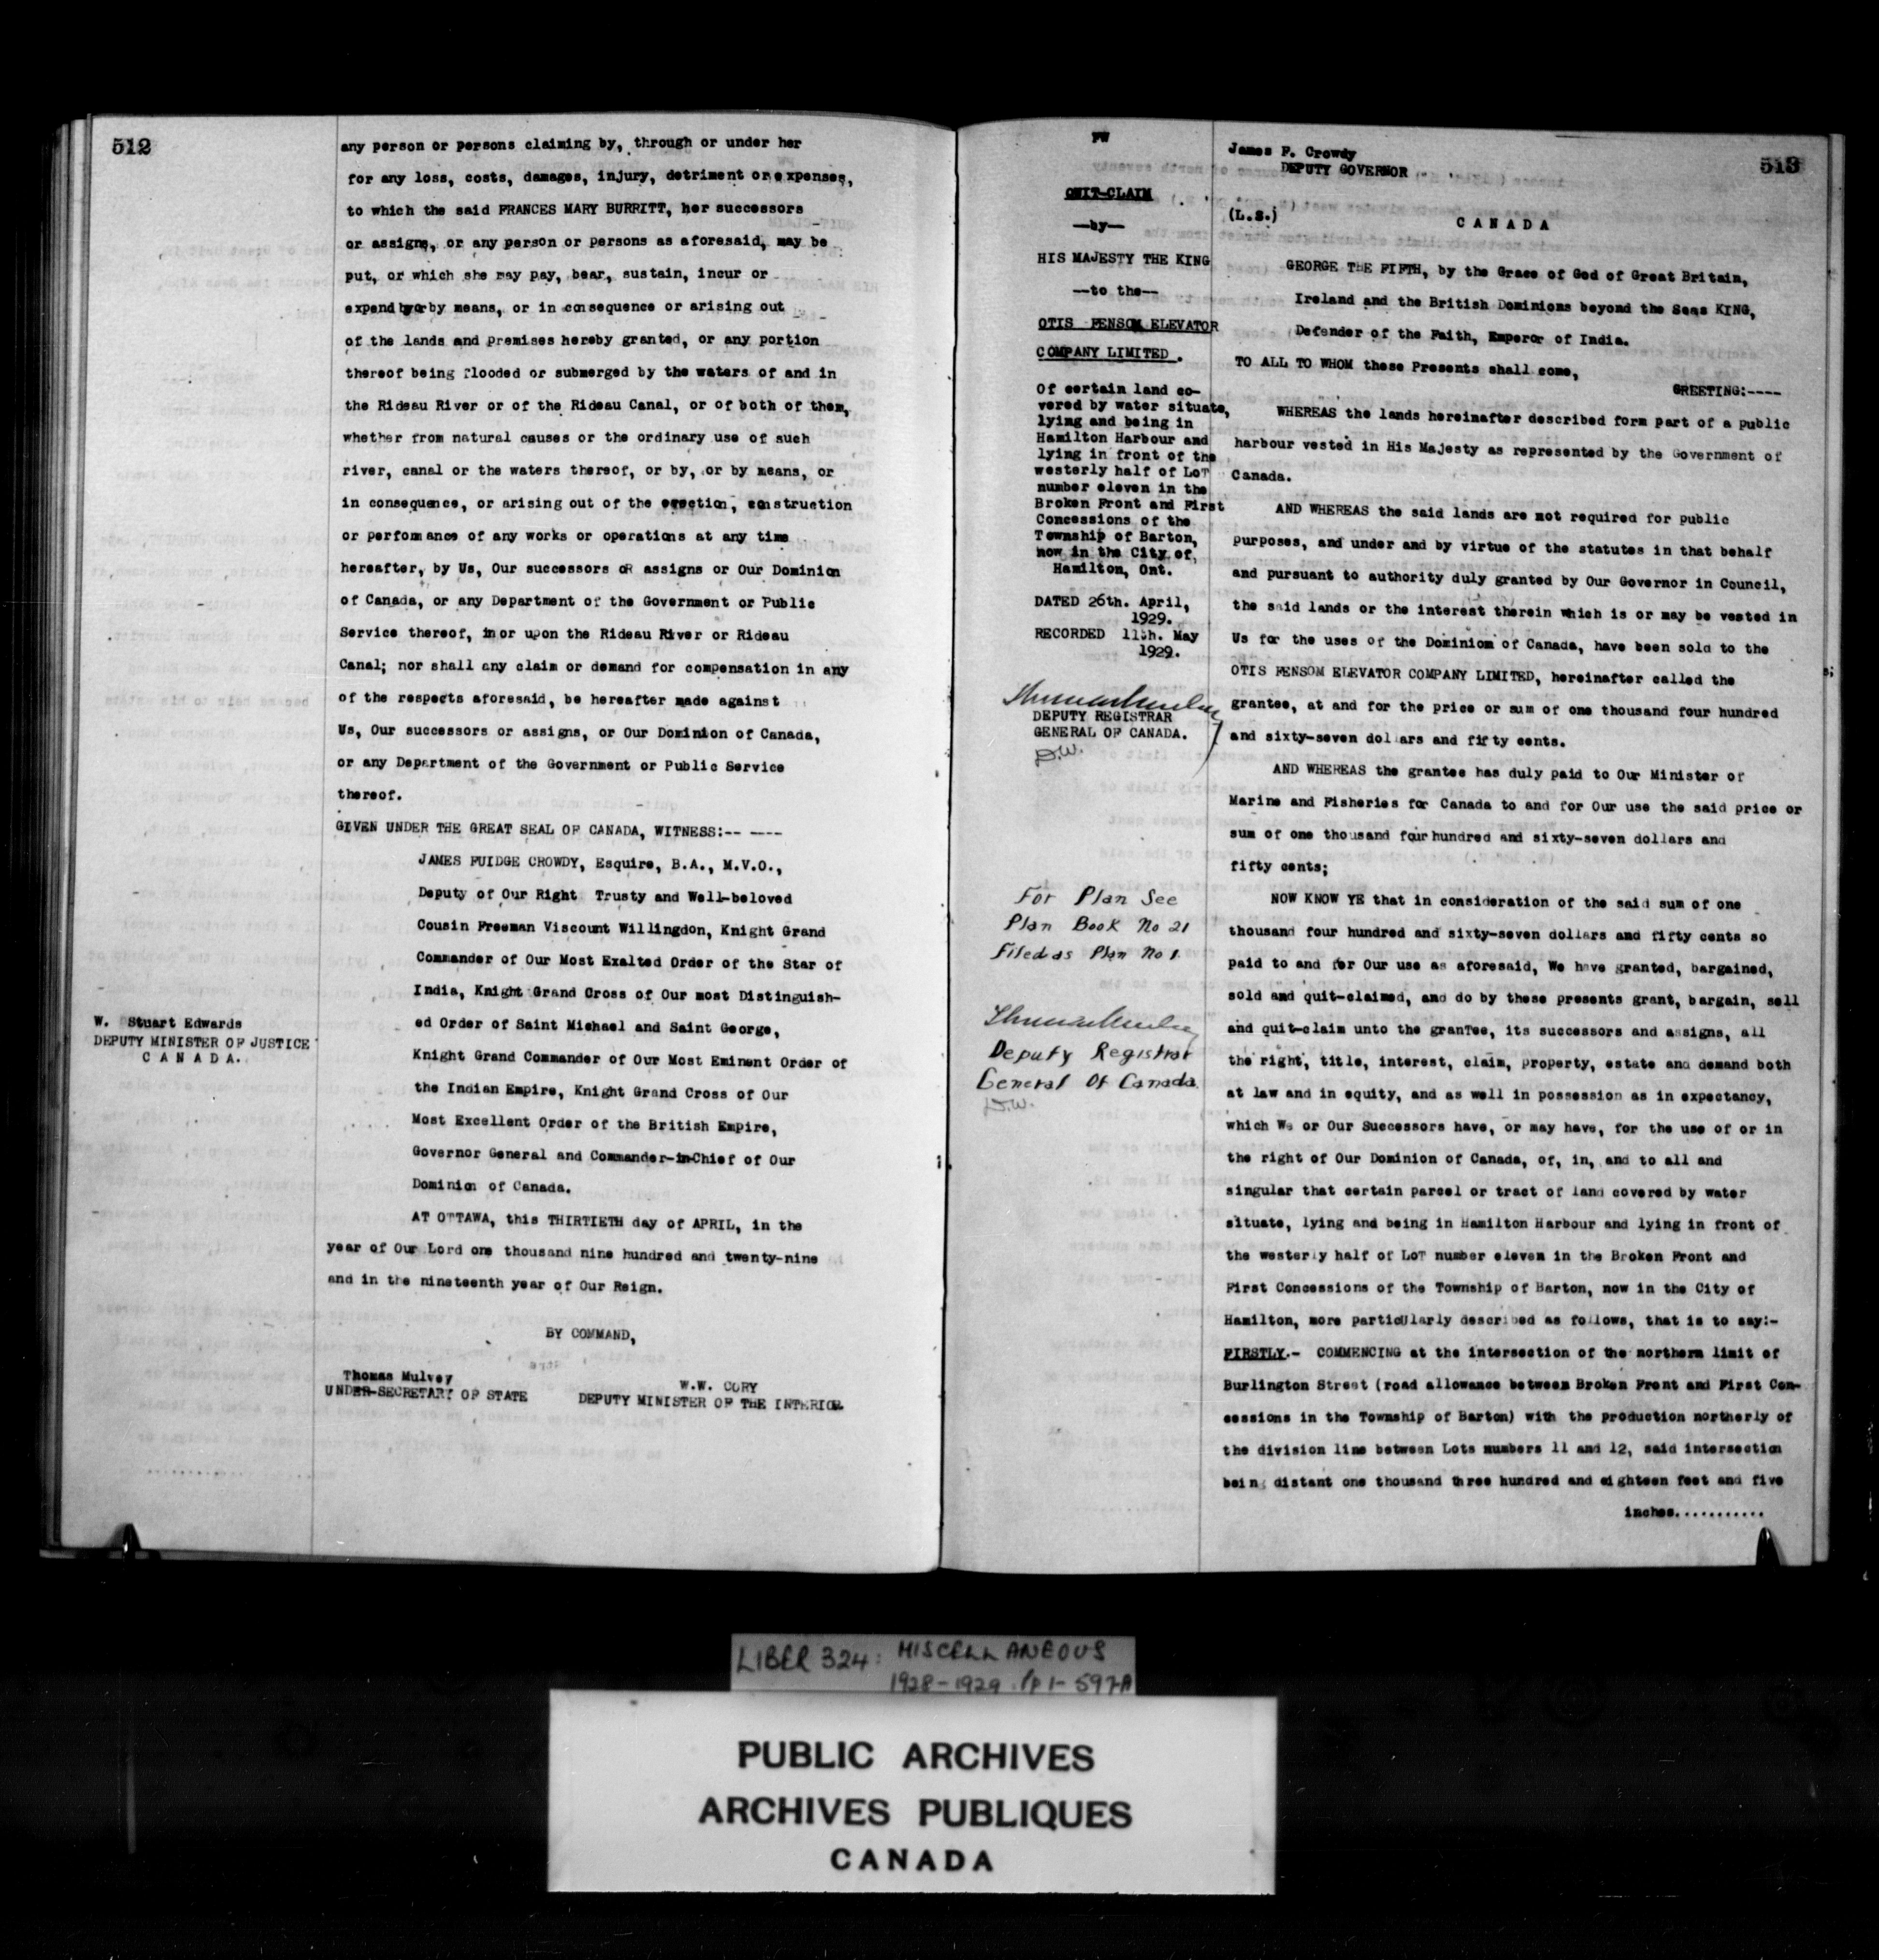 512
any person or persons claiming by, through or under her
for any loss, costs, damages, injury, detriment or expenses,
to which the said FRANCES MARY BURRITT, her successors
or assigns, or any person or persons as aforesaid, may be
put, or which she may pay, bear, sustain, incur or
expend by or by means, or in consequence or arising out
of the lands and premises hereby granted, or any portion
thereof being flooded or submerged by the waters of and in
the Rideau River or of the Rideau Canal, or of both of them,
whether from natural causes or the ordinary use of such
river, canal or the waters thereof, or by, or by means, or
in consequence, or arising out of the erection, construction
or performance of any works or operations at any time
hereafter, by Us, Our successors oR assigns or Our Dominion
of Canada, or any Department of the Government or Public
Service thereof, in or upon the Rideau River or Rideau
Canal; nor shall any claim or demand for compensation in any
of the respects aforesaid, be hereafter made against
Us, Our successors or assigns, or Our Dominion of Canada,
or any Department of the Government or Public Service
thereof.
GIVEN UNDER THE GREAT SEAL OF CANADA, WITNESS:-- ----
JAMES FUIDGE CROWDY, Esquire, B.A., M.V.O.,
Deputy of Our Right Trusty and Well-beloved
Cousin Freeman Viscount Willingdon, Knight Grand
Commander of Our Most Exalted Order of the Star of
India, Knight Grand Cross of Our most Distinguish-
ed Order of Saint Michael and Saint George,
Knight Grand Commander of Our Most Eminent Order of
the Indian Empire, Knight Grand Cross of Our
Most Excellent Order of the British Empire,
Governor General and Commander-in-Chief of Our
Dominion of Canada.
W. Stuart Edwards
DEPUTY MINISTER OF JUSTICE
C A N A D A.
AT OTTAWA, this THIRTIETH day of APRIL, in the
year of Our Lord one thousand nine hundred and twenty-nine
and in the nineteenth year of Our Reign.
BY COMMAND,
Thomas Mulvey
UNDER-SECRETARY OF STATE
W.W. CORY
DEPUTY MINISTER OF THE INTERIOR
FW
QUIT-CLAIM
--by--
HIS MAJESTY THE KING
--to the--
OTIS FENSOM ELEVATOR
COMPANY LIMITED.
Of certain land co-
vered by water situate,
lying and being in
Hamilton Harbour and
lying in front of the
westerly half of LoT
number eleven in the
Broken Front and First
Concessions of the
Township of Barton,
now in the City of
Hamilton, Ont.
DATED 26th. April,
1929.
RECORDED 11th. May
1929.
DEPUTY REGISTRAR
GENERAL OF CANADA.
D.W.
For Plan See
Plan Book No 21
Filed as Plan No 1
Deputy Registrar
General Of Canada
D.W.
513
James F. Crowdy
DEPUTY GOVERNOR
(L.S.)
C A N A D A
GEORGE THE FIFTH, by the Grace of God of Great Britain,
Ireland and the British Dominions beyond the Seas KING,
Defender of the Faith, Emperor of India.
TO ALL TO WHOM these Presents shall come,
GREETING:----
WHEREAS the lands hereinafter described form part of a public
harbour vested in His Majesty as represented by the Government of
Canada.
AND WHEREAS the said lands are not required for public
purposes, and under and by virtue of the statutes in that behalf
and pursuant to authority duly granted by Our Governor in Council,
the said lands or the interest therein which is or may be vested in
Us for the uses of the Dominion of Canada, have been sold to the
OTIS FENSOM ELEVATOR COMPANY LIMITED, hereinafter called the
grantee, at and for the price or sum of one thousand four hundred
and sixty-seven dollars and fifty cents.
AND WHEREAS the grantee has duly paid to Our Minister of
Marine and Fisheries for Canada to and for Our use the said price or
sum of one thousand four hundred and sixty-seven dollars and
fifty cents;
NOW KNOW YE that in consideration of the said sum of one
thousand four hundred and sixty-seven dollars and fifty cents so
paid to and for Our use as aforesaid, We have granted, bargained,
sold and quit-claimed, and do by these presents grant, bargain, sell
and quit-claim unto the granTee, its successors and assigns, all
the right, title, interest, claim, property, estate and demand both
at law and in equity, and as well in possession as in expectancy,
which We or Our Successors have, or may have, for the use of or in
the right of Our Dominion of Canada, of, in, and to all and
singular that certain parcel or tract of land covered by water
situate, lying and being in Hamilton Harbour and lying in front of
the westerly half of LoT number eleven in the Broken Front and
First Concessions of the Township of Barton, now in the City of
Hamilton, more particUlarly described as follows, that is to say:-
FIRSTLY.- COMMENCING at the intersection of the northern limit of
Burlington Street (road allowance between Broken Front and First Con-
cessions in the Township of Barton) with the production northerly of
the division line between Lots numbers 11 and 12, said intersection
being distant one thousand three hundred and eighteen feet and five
inches...........
LIBER 324: MISCELLANEOUS
1928-1929. pp 1-597A
PUBLIC ARCHIVES
ARCHIVES PUBLIQUES
CANADA